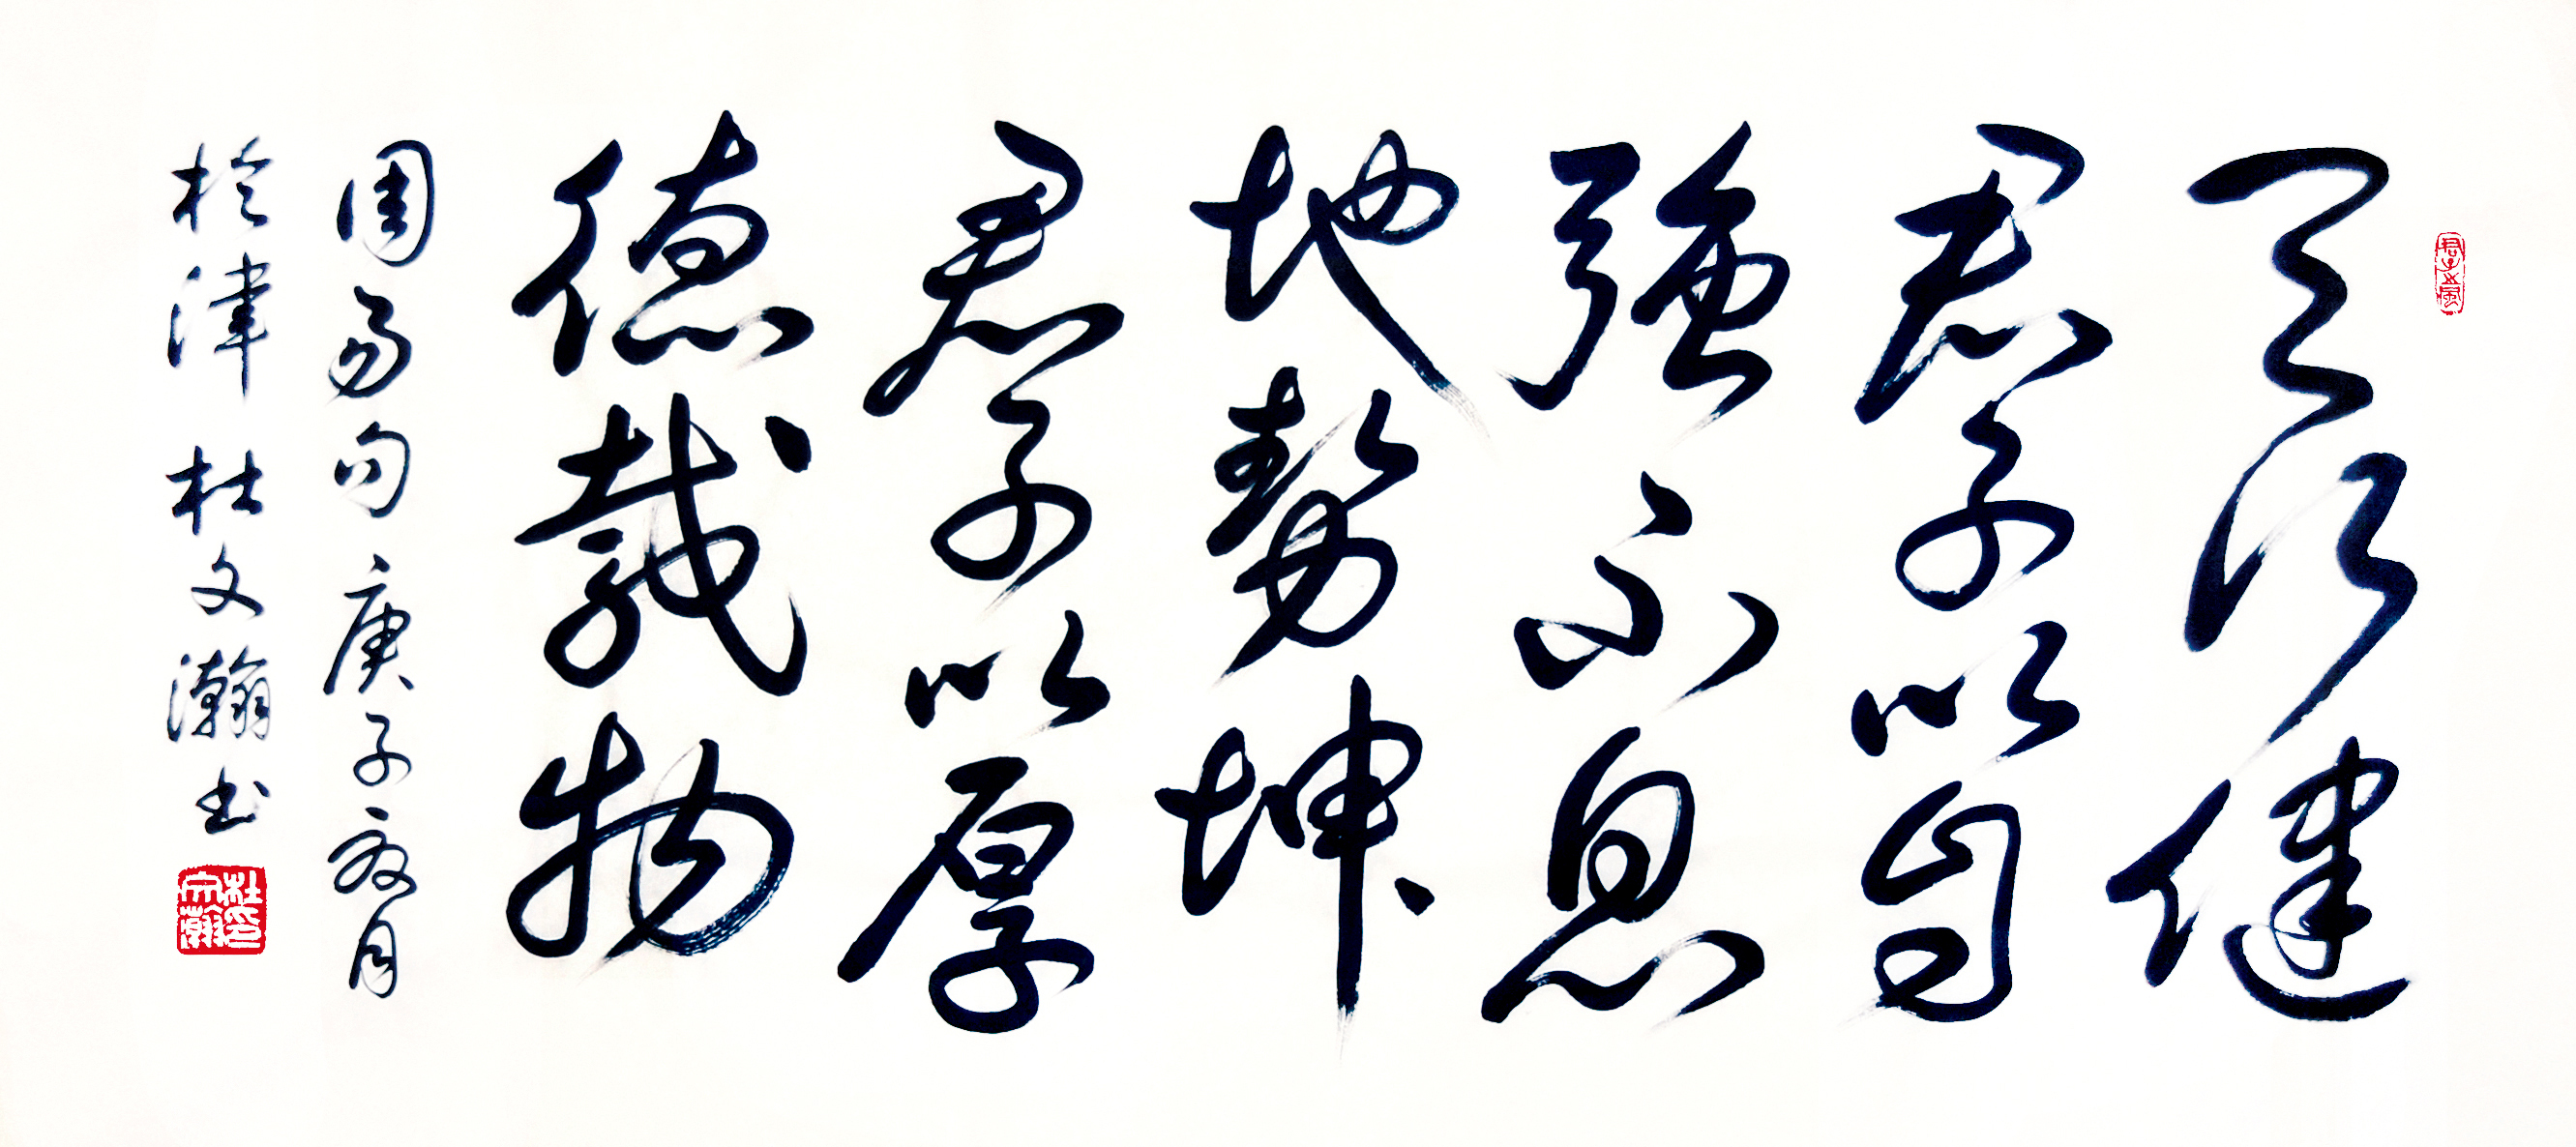 君子之風
天行健
君子以自
強不息
地勢坤、
君子以厚
德載物
周易句庚子夏月
於津 杜文瀚书